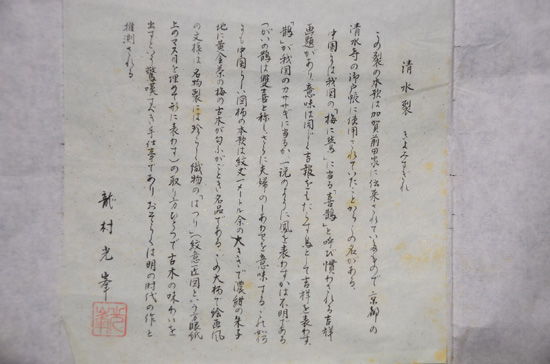 清水裂　きよみずぎれ
この裂の本歌は加賀前田家に伝来されているもので京都の
清水寺の御戸帳に使用されていたことからこの名がある。
中国では我国の「梅に鶯」に当る「喜鵲」と呼び慣わされる吉祥
画題があり、意味は同じく吉報をもたらす鳥として吉祥を表わす。
「鵲」が我国のカササギに当るか一説のように鳳を表わすかは不明である
つがいの鵲は雙喜と称し、さらに夫婦のしあわせを意味する。
中国らしい図柄の本歌は紋丈一メートル余の大きさで濃紺の朱子
地に黄金色の梅の古木が匂うがごとき名品である。この大柄で絵画風
の文様は名物裂には珍らしく織物の「はつり」(紋意匠図という方眼紙
上のマス目を埋め形に表わす)の取り方ひとつで古木の味わいを
出すという驚嘆すべき手仕事でありおそらくは明の時代の作と
推測される
龍村光峯